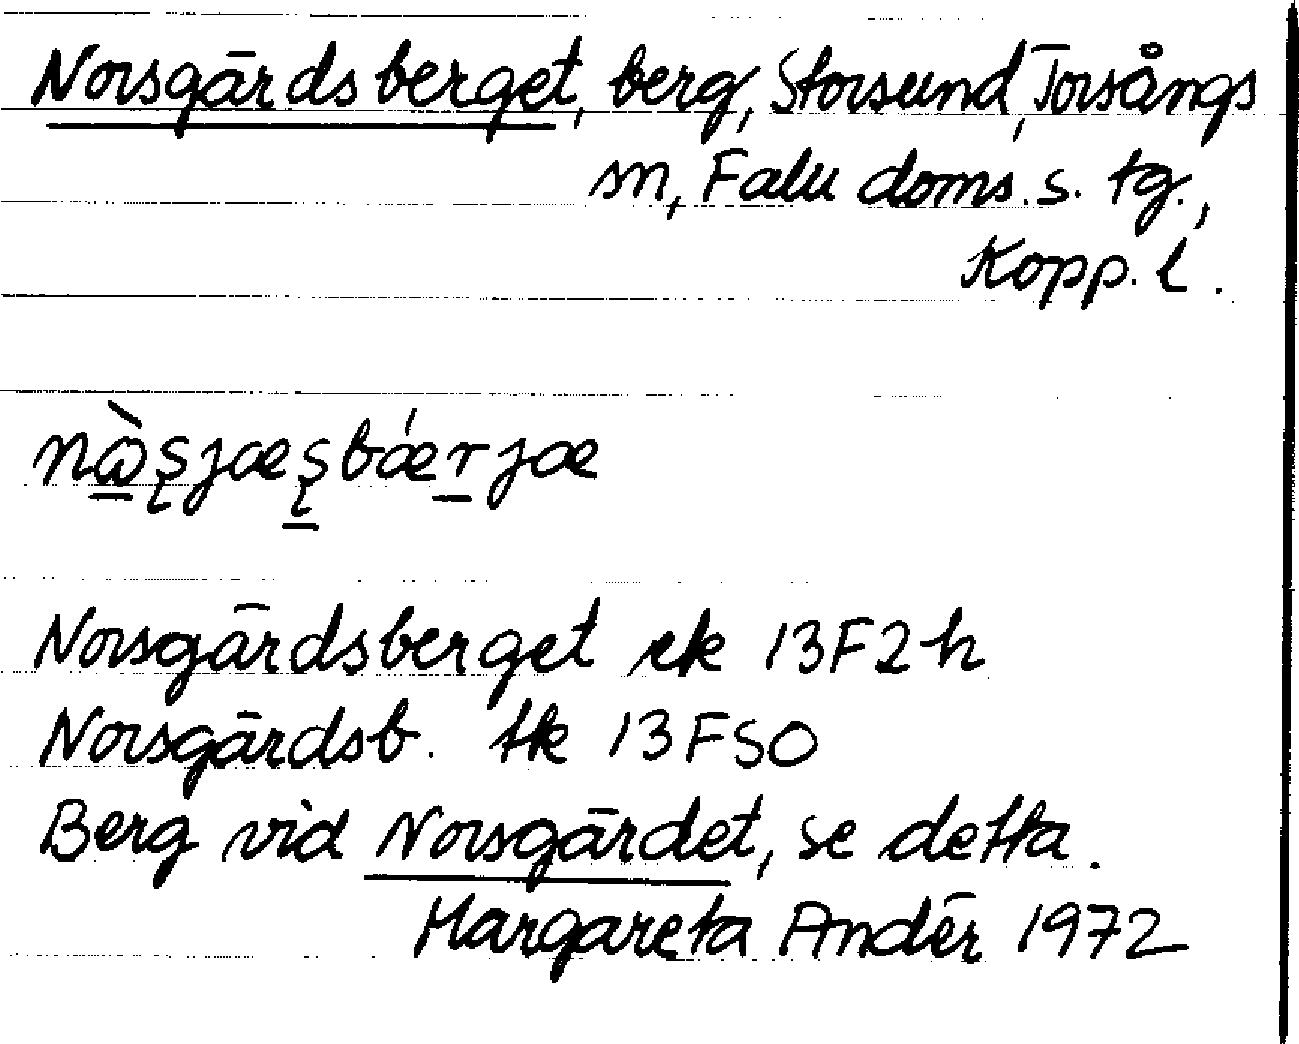 Norsgärdsberget, berg, Storsund, Torsångs
sn, Falu doms. s. tg.,
Kopp. l.
Norsgärdsberget ek 13F2h
Norsgärdsb. tk 13FSO
Berg vid Norsgärdet, se detta.
Margareta Andér 1972